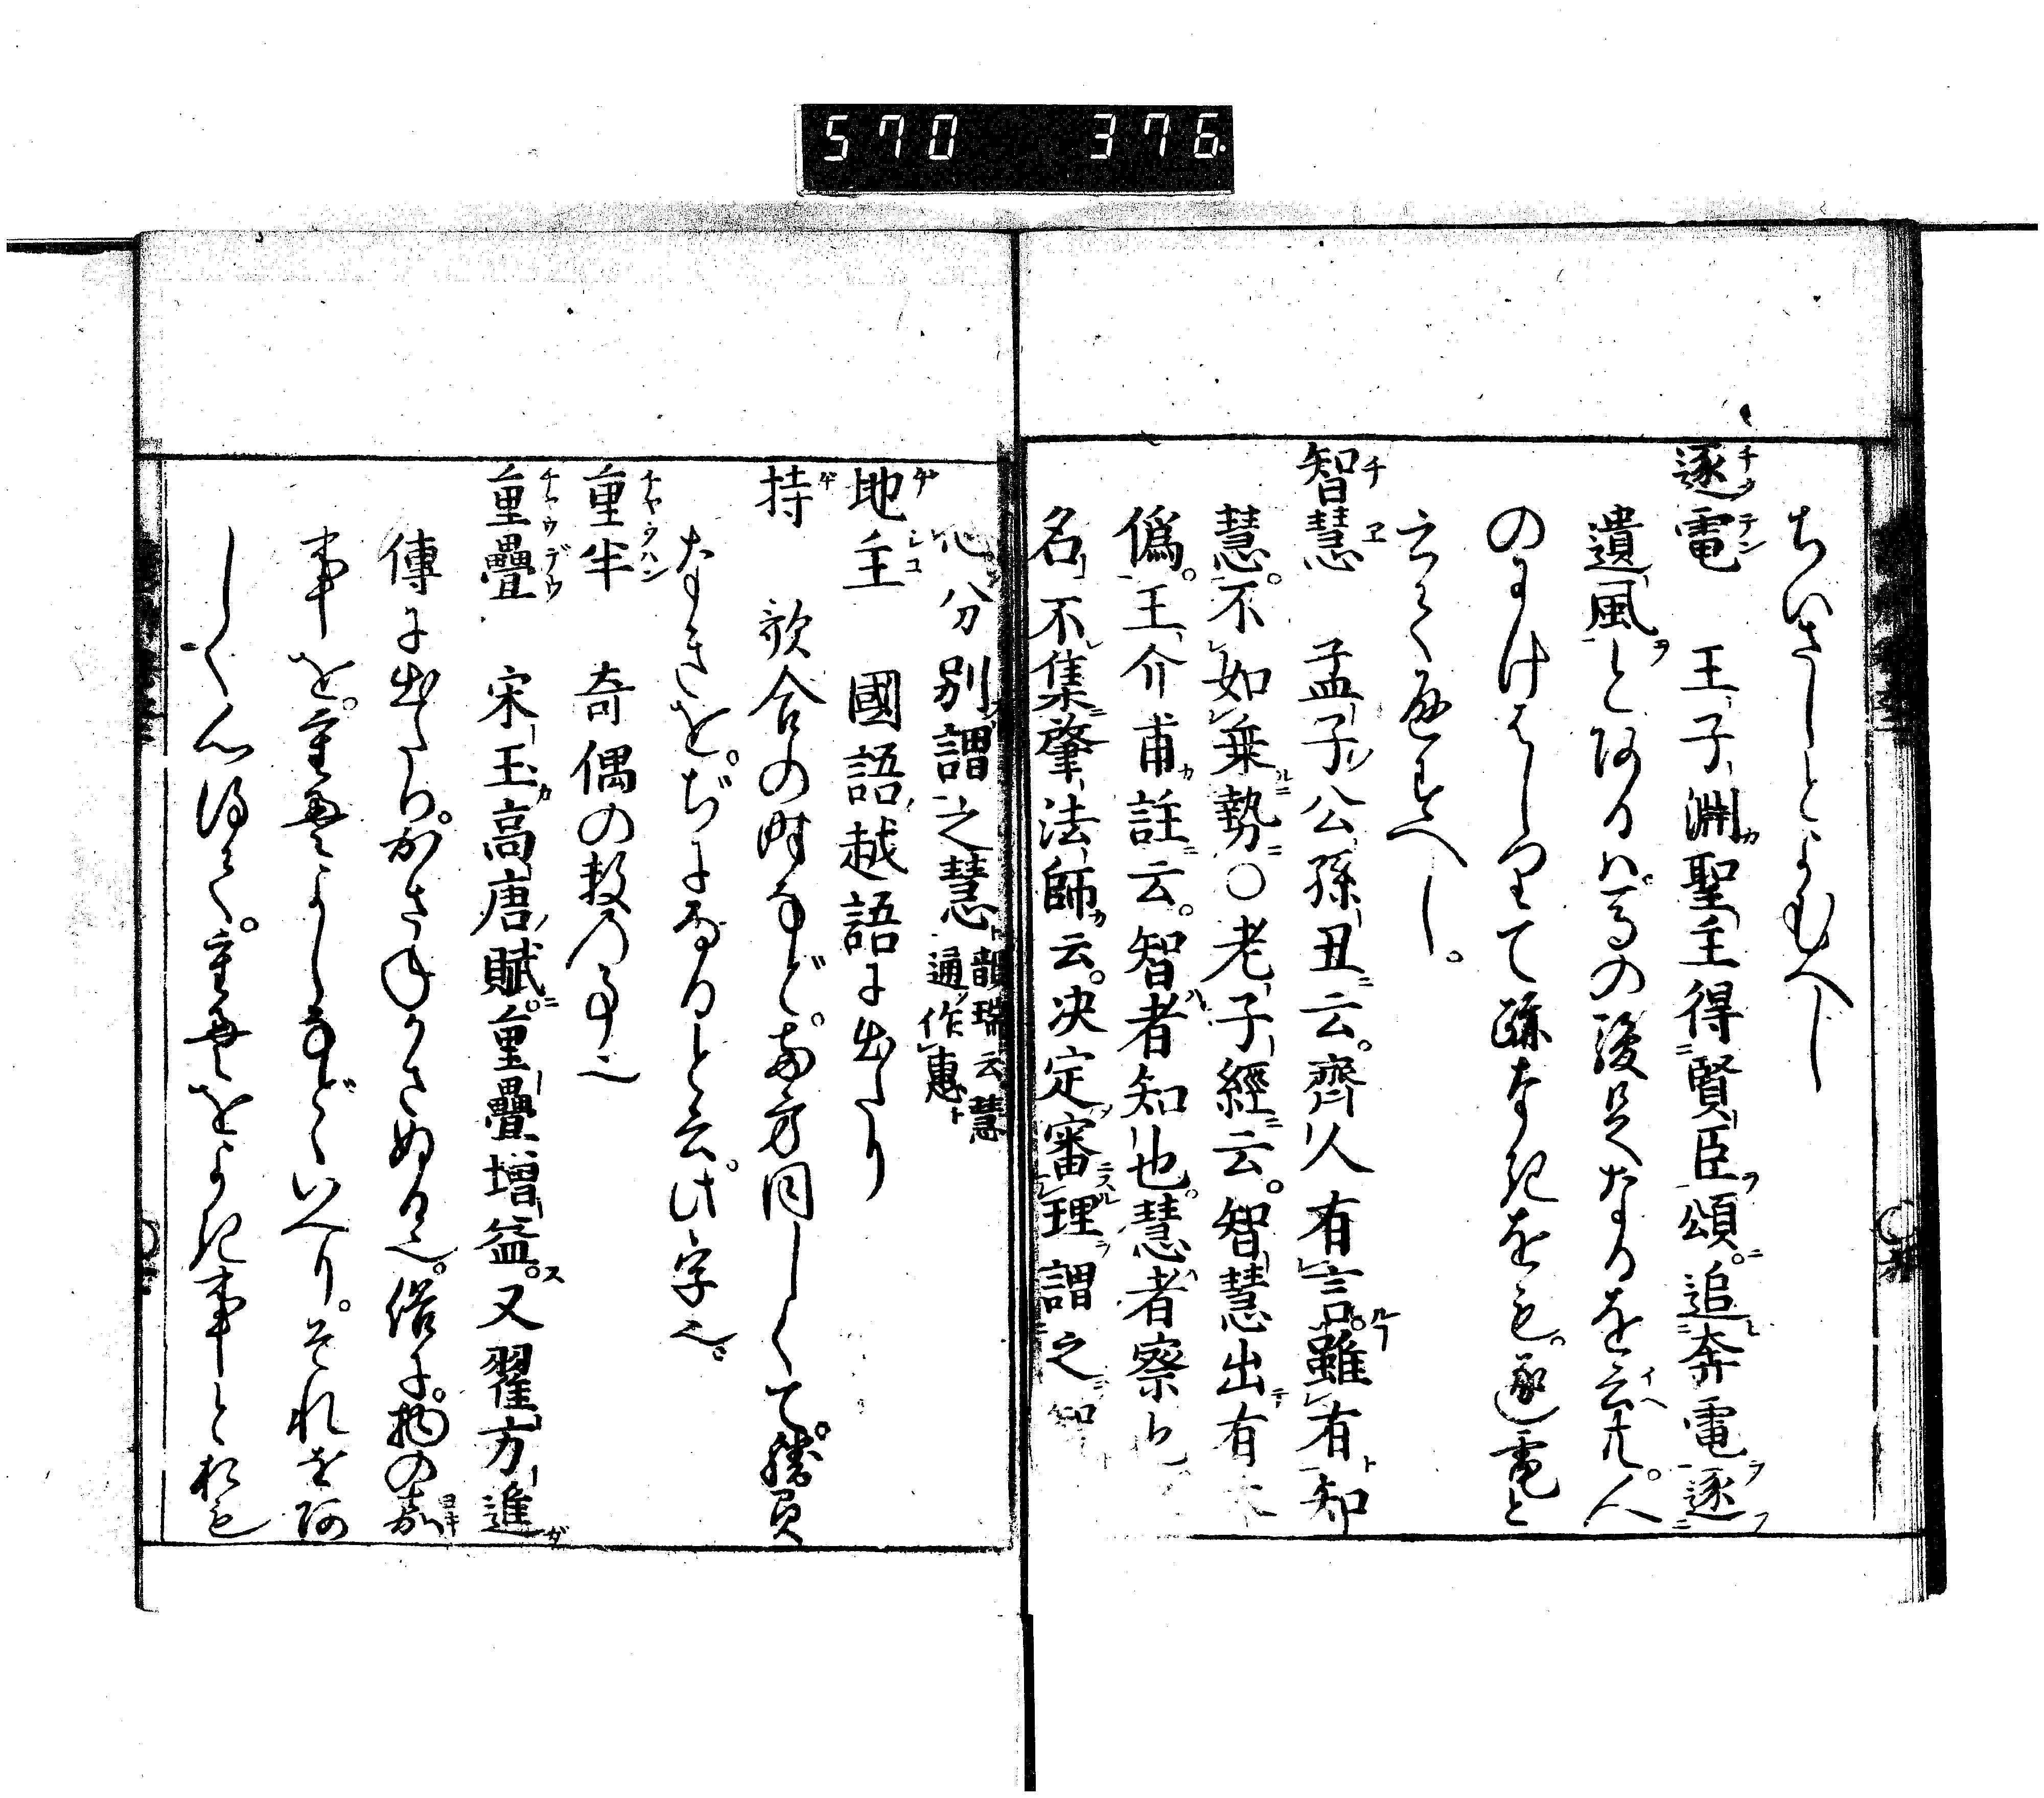 570 376
ちいさしとよむへし
逐電 王子淵聖主得賢臣頌。追奔電逐
遺風とあるハ。馬の後足なるを云共。人
のにけはしりて跡なきをも。逐電と
云て通すへし。
智慧 孟子公孫丑云。齊人有言。雖有知
慧。不如乗勢○老子經云。智慧出有大
偽。王介甫註云。智者知也。慧者察也。
名不集。肇法師云。决定審理謂之知
心分別謂之慧 韻瑞云慧通作惠
地主 國語越語に出たり
持 歌合の時など。両方同しくて。勝負
なきを。ぢになると云。此字也。
重半 奇偶の数の事也
重疊 宋玉高唐賦。重疊増益。又翟方進
傳に出たり。かさねかさぬる也。俗に。物の嘉
事を。重畳よしなどゝいへり。それをあ
しく心得て。重畳をよき事とおも